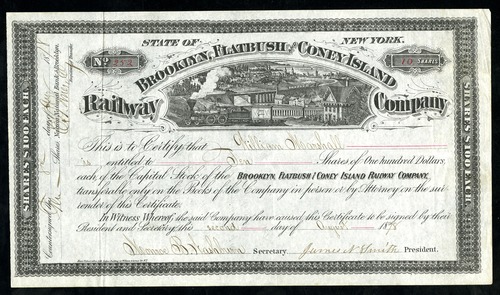 STATE OF NEW YORK.
No 253
10 SHARES
BROOKLYN, FLATBUSH AND CONEY ISLAND
Railway Company
This is to Certify that William Marshall
is entitled to Ten Shares of One hundred Dollars,
each of the Capital Stock of the BROOKLYN, FLATBUSH & CONEY ISLAND RAILWAY COMPANY,
transferable only on the Books of the Company in person or by Attorney on the sur-
render of this Certificate.
In Witness Whereof, the said Company have caused this Certificate to be signed by their
President and Secretary this second day of August 1878
Secretary James N. Smith President.
SHARES $100 EACH.
SHARES $100 EACH.
Countersigned this
day of